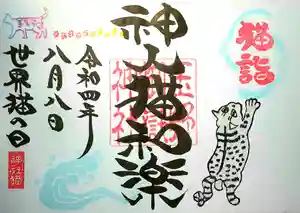 猫詣
神人猫和楽
令和四年
八月八日
世界猫の日
神社猫